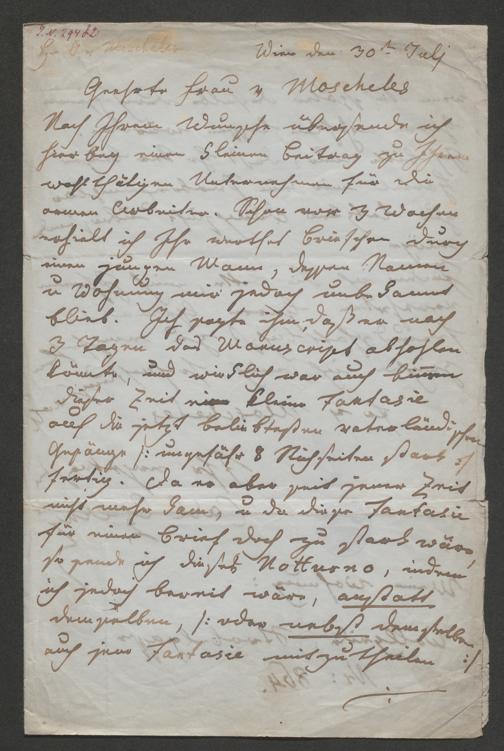 Wien den 30t Juli
Geehrte Frau v Moscheles
Nach Ihrem Wunsche übersende ich
hierbey einen kleinen Beitrag zu Ihrem
wohlthätigen Unternehmen für die
armen Arbeiter. Schon vor 3 Wochen
erhielt ich Ihr werthes Briefchen durch
einen jungen Mann, dessen Namen
u Wohnung mir jedoch unbekannt
blieb. Ich sagte ihm, daß er nach
3 Tagen das Manuscript abholen
könnte, und wirklich war auch binnen
dieser Zeit eine kleine Fantasie
auf die jetzt beliebtesten vaterländischen
Gesänge /: ungefähr 8 Stichseiten stark :/
fertig. Da er aber seit jener Zeit
nicht mehr kam, u da diese Fantasie
für einen Brief doch zu stark wäre,
so sende ich dieses Notturno, indem
ich jedoch bereit wäre, anstatt
demselben, /: oder nebst demselben
auch jene Fantasie mitzutheilen :/